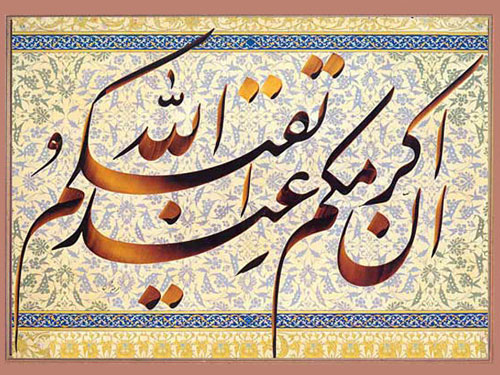 انّ اکرمکم عند الله اتقیکم